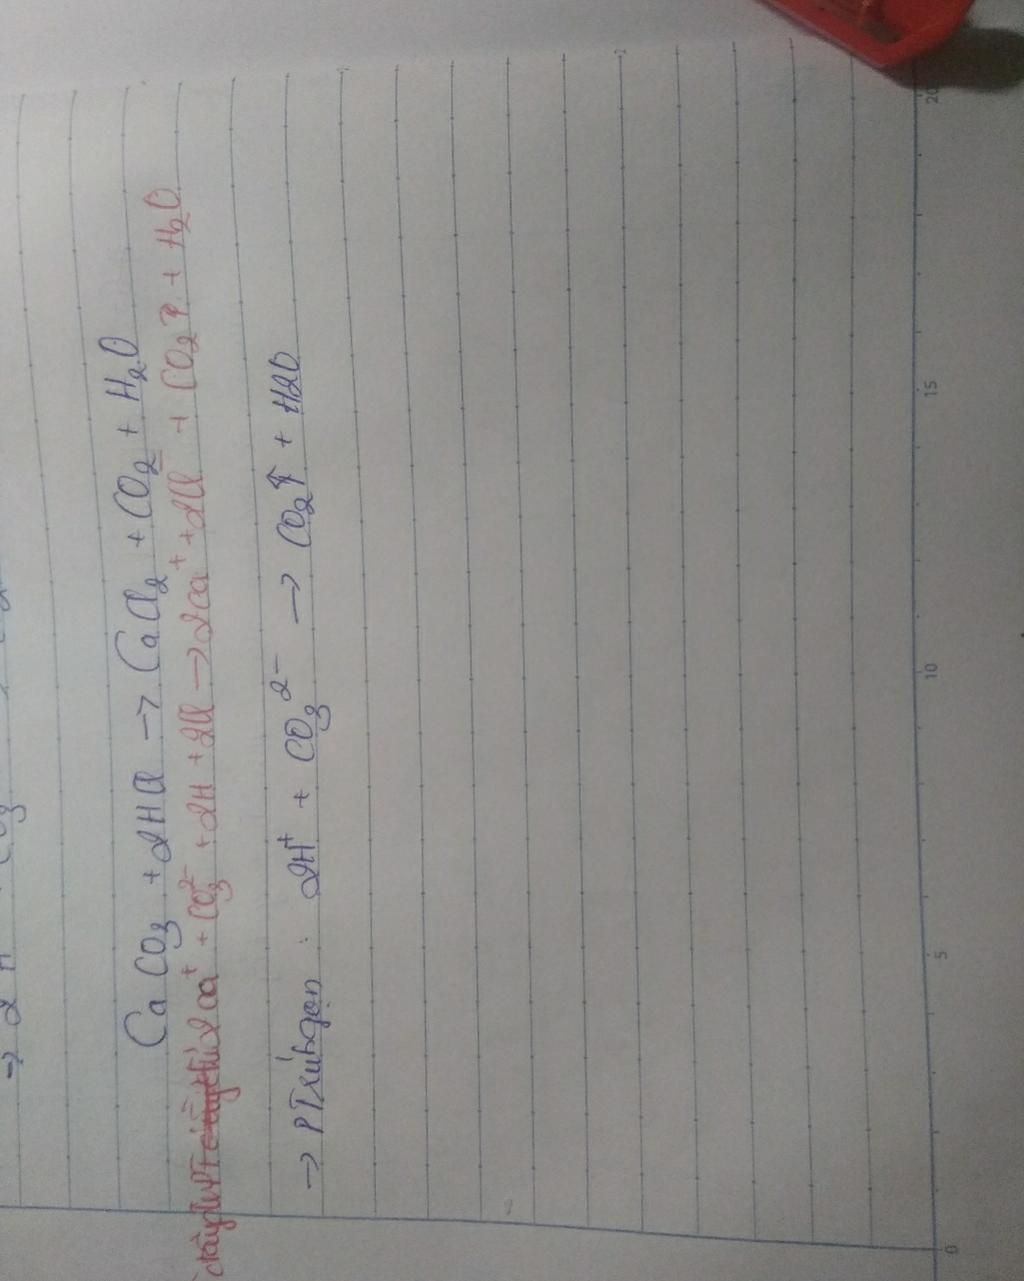 → 2H
CaCO₃ + 2HCl → CaCl₂ + CO₂ + H₂O
2Ca⁺ + CO₃²⁻ + 2H + 2Cl → 2Ca⁺ + 2Cl⁻ + CO₂↑ + H₂O
→ PT rút gọn : 2H⁺ + CO₃²⁻ → CO₂↑ + H2O
0 5 10 15 20